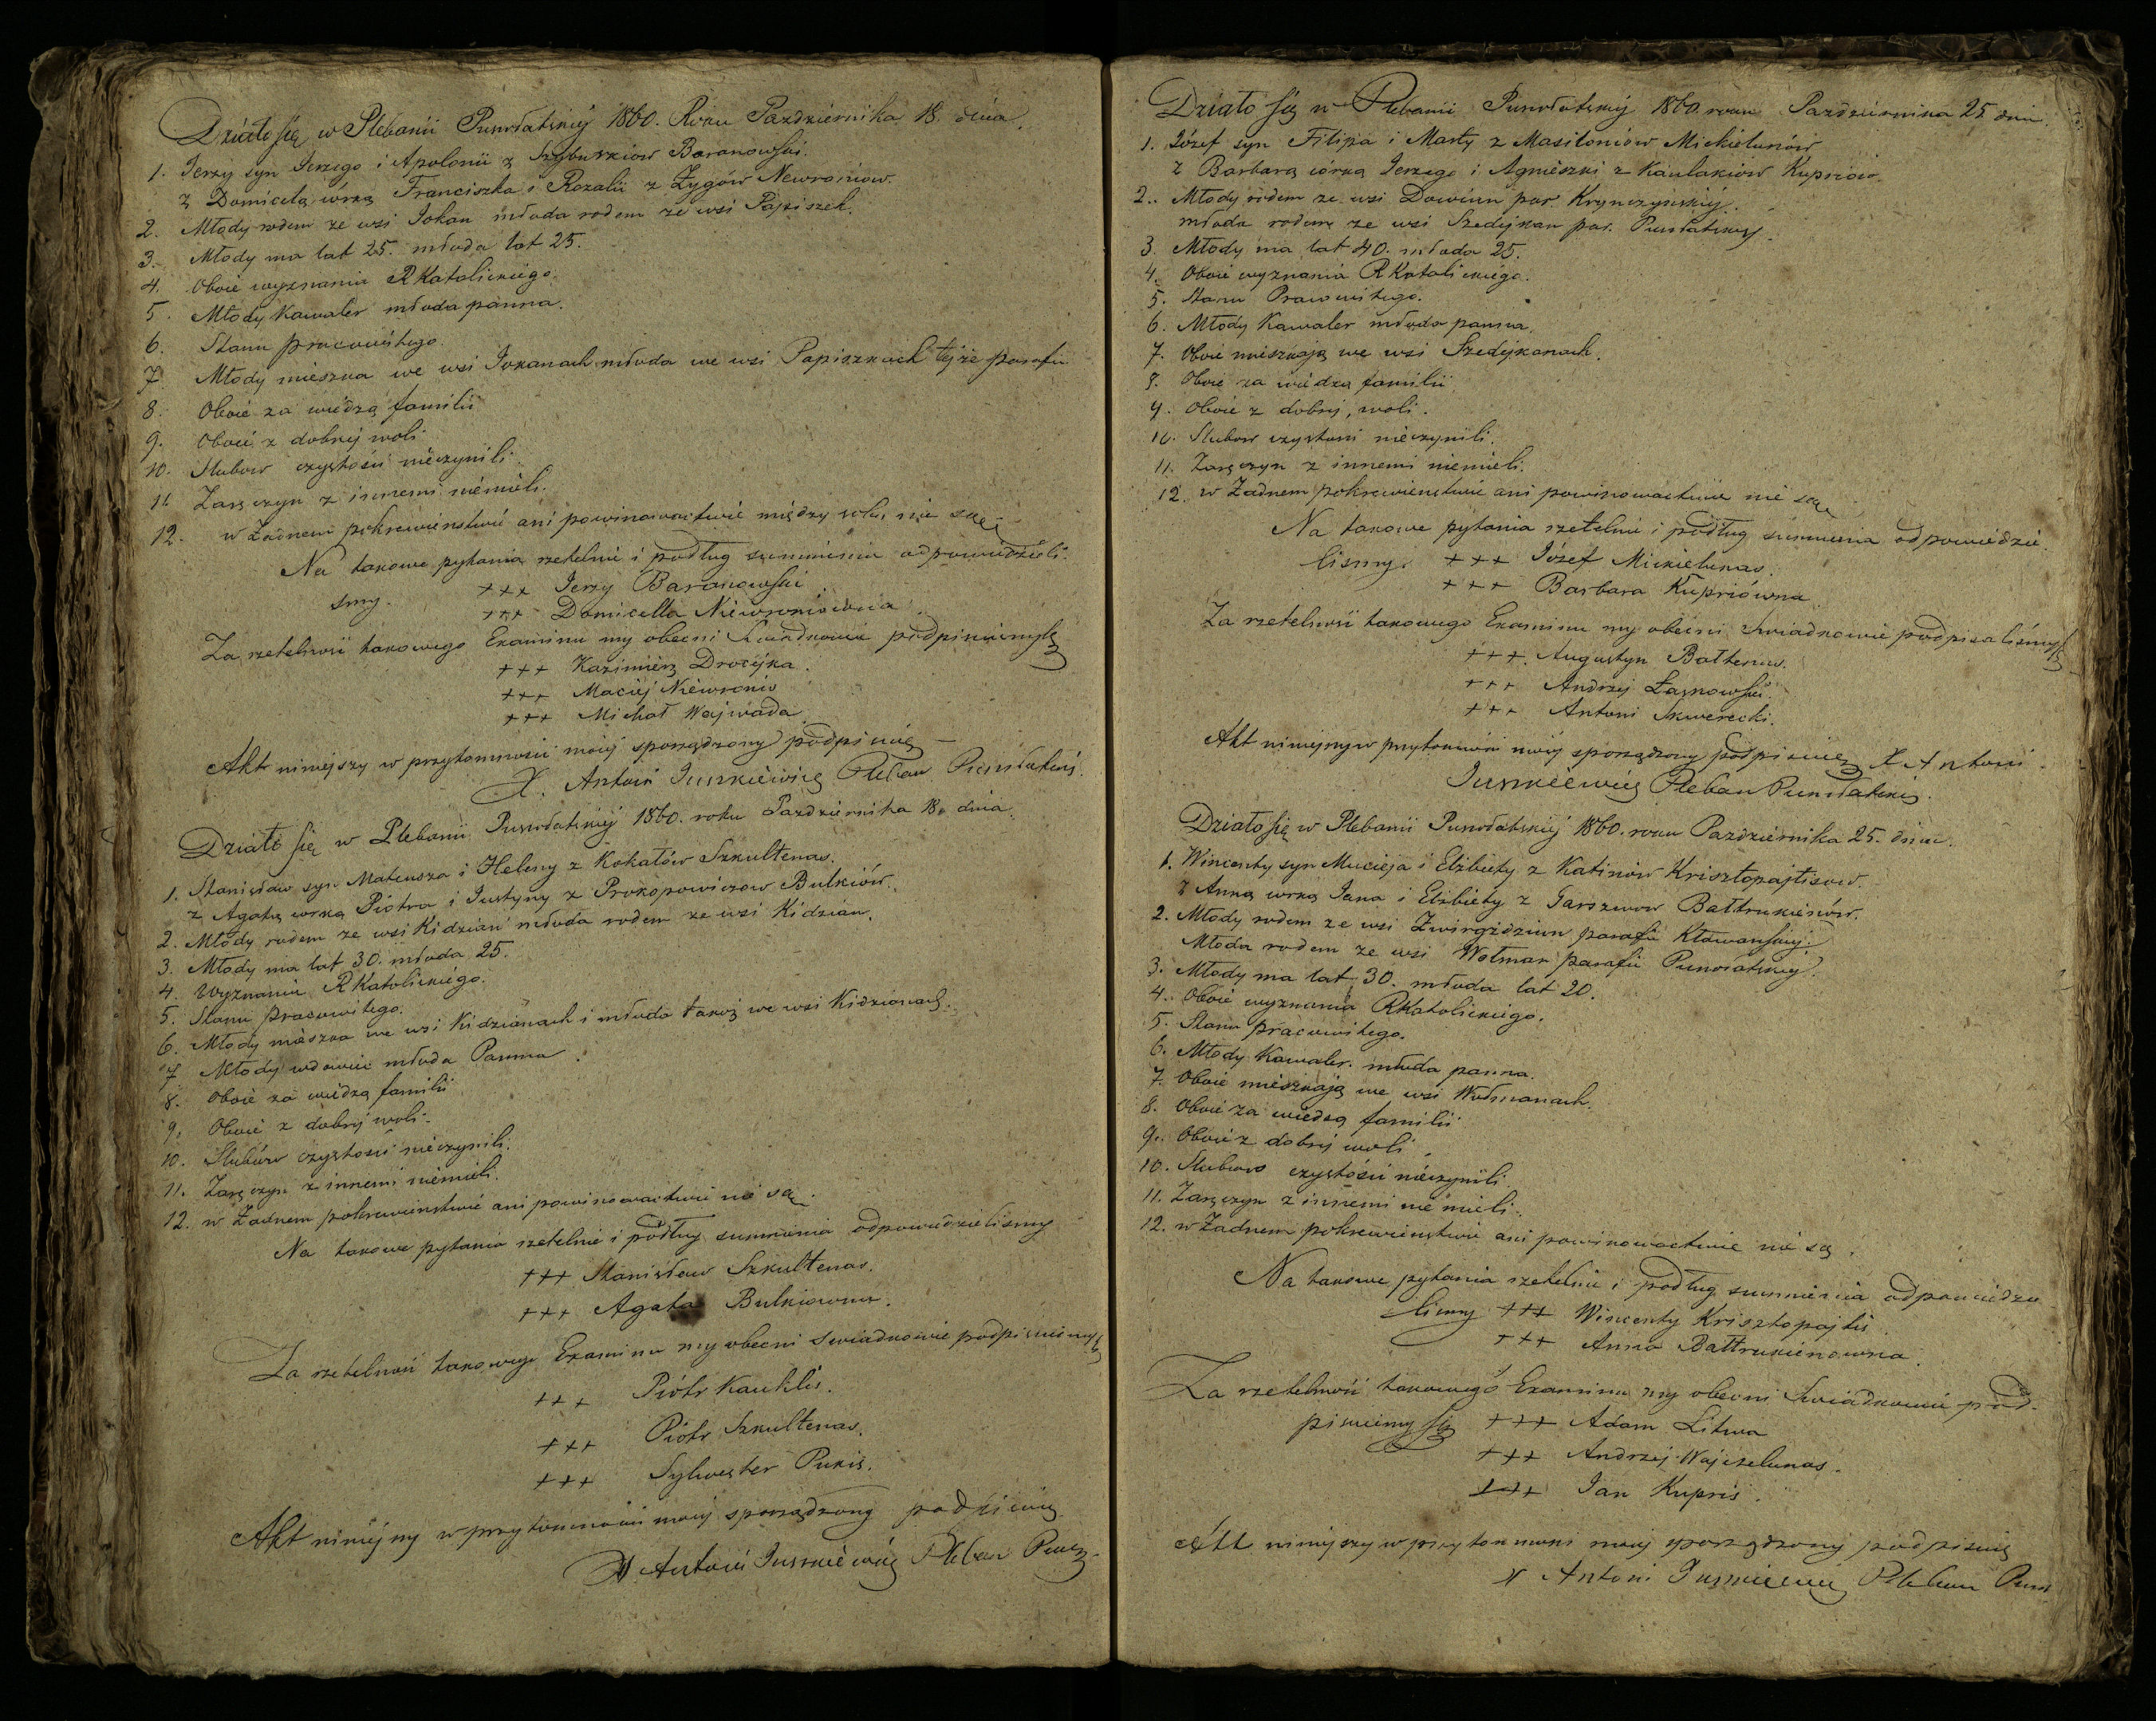 Działo się w Plebanii Punsłatskiej 1860. Roku Pazdziernika 18 dnia.
1. Jerzy syn Jerzego i Apolonii z Szyburskiow Baranowski.
z Domicelą córką Franciszka i Rozalii z Żygów Newroniow.
2. Młody rodem ze wsi Jokan młoda rodem ze wsi Papiszek.
3. Młody ma lat 25. młoda lat 25.
4. Oboie wyznania R Katolickiégo.
5. Młody Kawaler młoda panna.
6. Stanu pracowitego.
7. Młody mieszka we wsi Jokanach młoda we wsi Papiszkach tejże parafii
8. Oboie za wiédzą familii
9. Oboié z dobréj woli
10. Slubow czystości nieczynili
11. Zaręczyn z innemi niémieli.
12. w Żadnem pokrewieństwié ani powinowactwié między sobą nie są
Na takowe pytania rzetelnié i podług sumnienia odpowiedzieli
smy. +++ Jerzy Baranowski
+++ Domicella Niéwroniowna
Za rzetelność takowego Examinu my obecni Swiadkowie podpisuiemysię
+++ Kazimiérz Drocejka.
+++ Maciéj Niéwronis
+++ Michał Wajwada
Akt niniejszy w przytomnosci moiéj sporządzony podpisuię
X. Antoni Juszkiéwicz Pleban Punsłatski.
Działo się w Plebanii Punsłatskiéj 1860. roku Pazdziernika 18. dnia.
1. Stanisław syn Mateusza i Heleny z Kokatów Szkultenas.
z Agatą córką Piotra i Justyny z Prokopowiczow Bulkiów.
2. Młody rodem ze wsi Kidzian młoda rodem ze wsi Kidzian.
3. Młody ma lat 30. młoda 25.
4. Wyznania R Katolickiégo.
5. Stanu pracowitego.
6. Młody miészka we wsi Kidzianach i młoda takoż we wsi Kidzianach.
7. Młody wdowiec młoda Panna.
8. Oboie za wiedzą familii
9. Oboié z dobréj woli.
10. Slubów czystości niéczynili.
11. Zaręczyn z innemi niémieli.
12. w Żadnem pokrewienstwié ani powinowactwié nié są.
Na takowe pytania rzetelnie i podług sumnienia odpowiedzielismy
+++ Stanisław Szkultenas.
+++ Agata Bulkiowna.
Za rzetelność takowego Examinu my obecni Swiadkowie podpisuiemysię
+++ Piótr Kauklis.
+++ Piótr Szkultenas.
+++ Sylwester Pukis.
Akt niniejszy w przytomności moiéj sporządzony podpisuię
X Antoni Juszkiéwicz Pleban Puns.
Działo się w Plebanii Punsłatskiéj 1860. roku Pazdziernika 25 dnia.
1. Józef syn Filipa i Marty z Masitoniów Mickielunów
z Barbarą córką Jerzego i Agniészki z Kaulakiów Kupriów
2. Młody rodem ze wsi Dowiun par Krynczynskiéj.
młoda rodem ze wsi Szedejkan par. Punsłatskiéj.
3. Młody ma lat 40. młoda 25.
4. Oboié wyznania R Katolickiégo.
5. Stanu Pracowitego.
6. Młody Kawaler młoda panna.
7. Oboié miészkają we wsi Szedejkanach.
8. Oboié za wiédzą familii
9. Oboié z dobréj, woli.
10. Slubow czystosci niéczynili.
11. Zaręczyn z innemi niemieli.
12. w Żadnem pokrewienstwié ani powinowactwie nié są
Na takowe pytania rzetelnie i podług sumnienia odpowiedzie
lismy. +++ Józef Mickielunas.
+++ Barbara Kupriówna
Za rzetelność takowego Examinu my obecni Swiadkowie podpisalismysię
+++ Augustyn Bałtenas.
+++ Andrzej Łasnowski.
+++ Antoni Skwerecki.
Akt niniejszy w przytomności moiéj sporządzony podpisuię X Antoni
Juszkiewicz Pleban Punsłatski.
Działo się w Plebanii Punsłatskiéj 1860. roku Pazdziérnika 25. dnia.
1. Wincenty syn Macieja i Elżbiéty z Katinów Krisztopajtisow.
z Anną córką Jana i Elżbiéty z Jarszewow Bałtrukienów.
2. Młody rodem ze wsi Zwirgździun parafii Kławanskiéj.
Młoda rodem ze wsi Wołman parafii Punsłatskiéj.
3. Młody ma lat 30. młoda lat 20.
4. Oboié wyznania R Katolickiego.
5. Stanu pracowitego.
6. Młody Kawaler. młoda panna.
7. Oboié miészkają we wsi Wołmanach.
8. Oboié za wiédzą familii
9. Oboié z dobréj woli
10. Slubow czystości niéczynili
11. Zaręczyn z innemi nié mieli.
12. w Żadnem pokrewieństwié ani powinowactwie nié są.
Na takowe pytania rzetelnie i podług sumnienia odpowiedzie
lismy +++ Wincenty Krisztopajtis
+++ Anna Bałtrukienowna.
Za rzetelność takowego Examinu my obecni Swiadkowie pod-
pisuiemy się +++ Adam Litwa
+++ Andrzéj Wajczelunas.
+++ Jan Kupris.
Akt niniejszy w przytomnosci moiéj sporządzony podpisuię
X Antoni Juszkiewicz Pleban Puns